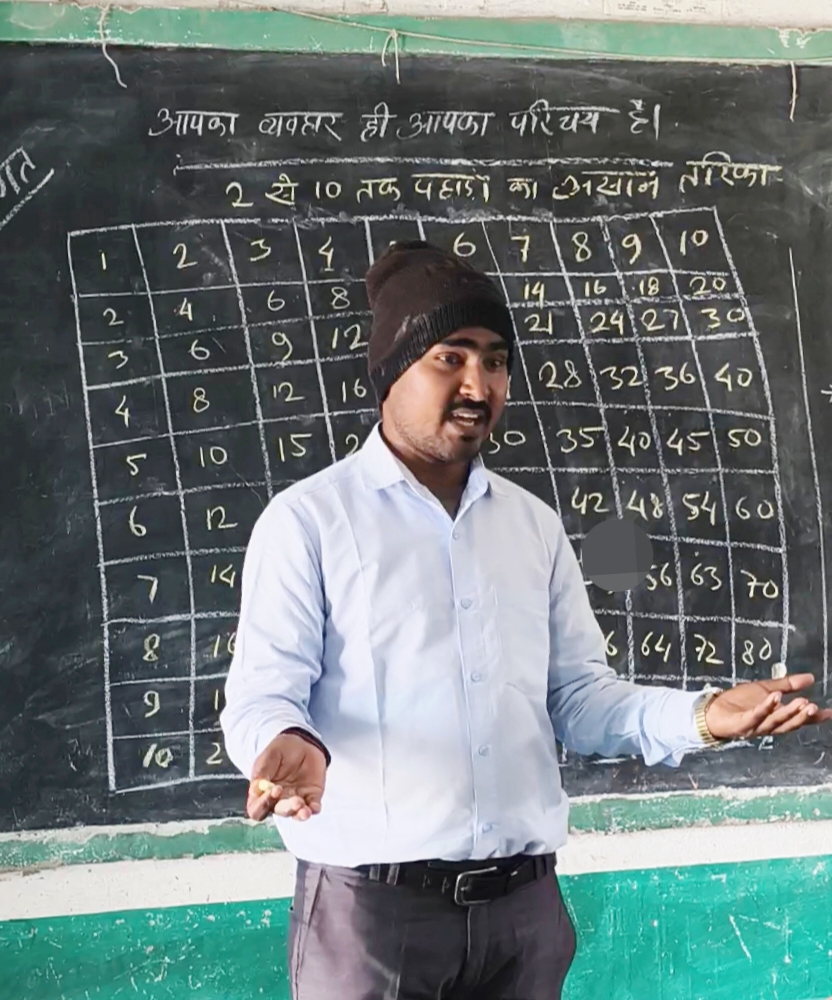 गत
आपका व्यवहार ही आपका परिचय है।
2 से 10 तक पहाड़ों का आसान तरिका
1 2 3 4 6 7 8 9 10
2 4 6 8 14 16 18 20
3 6 9 12 21 24 27 30
4 8 12 16 28 32 36 40
5 10 15 35 40 45 50
6 12 42 48 54 60
7 14 56 63 70
8 64 72 80
9
10